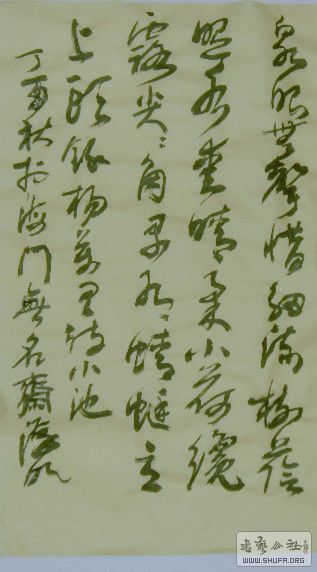 泉眼無聲惜細流樹蔭
照水愛晴柔小荷纔
露尖〻角早有蜻蜓立
上頭錄楊萬里詩小池
丁酉秋於海門無名齋
書藝公社
WWW.SHUFA.ORG